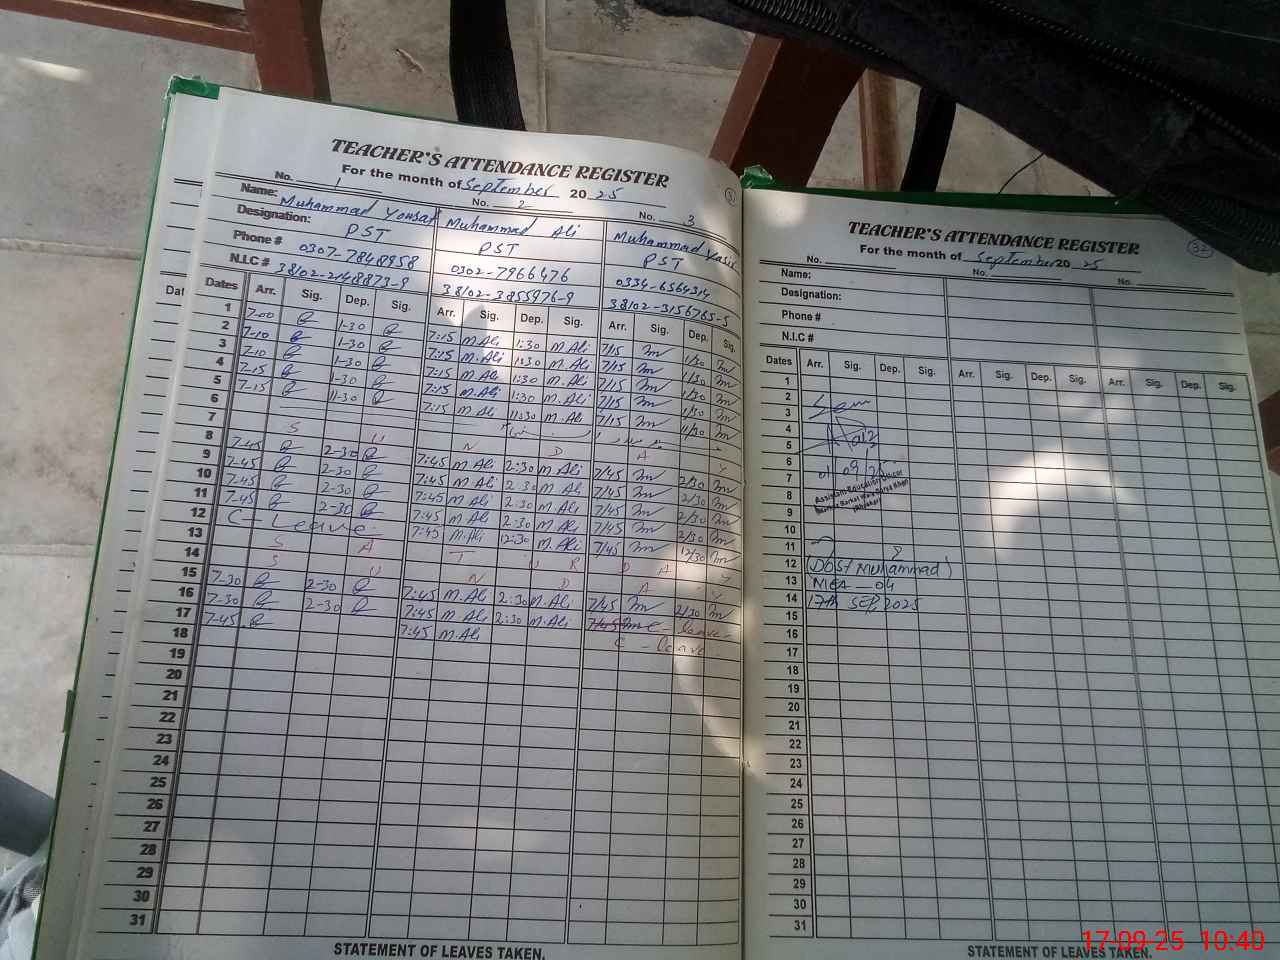 TEACHER'S ATTENDANCE REGISTER
For the month of September 2025
No. 1 No. 2 No. 3
Name: Muhammad Yousaf Muhammad Ali Muhammad Yasir
Designation: PST PST PST
Phone # 0307-7848958 0302-7966476 0336-6564314
N.I.C # 38102-2148873-9 38102-3855976-9 38102-3156765-5
Dates Arr. Sig. Dep. Sig. Arr. Sig. Dep. Sig. Arr. Sig. Dep. Sig.
1 7-00 1-30 7:15 M.Ali 1:30 M.Ali 7/15 1/30
2 7-10 1-30 7:15 M.Ali 1:30 M.Ali 7/15 1/30
3 7-10 1-30 7:15 M.Ali 1:30 M.Ali 7/15 1/30
4 7-15 1-30 7:15 M.Ali 1:30 M.Ali 7/15 1/30
5 7-15 11-30 7:15 M.Ali 11:30 M.Ali 7/15 11/30
6
7 S U N D A Y
8 7-45 2-30 7:45 M Ali 2:30 M.Ali 7/45 2/30
9 7-45 2-30 7:45 M Ali 2:30 M Ali 7/45 2/30
10 7-45 2-30 7:45 M Ali 2:30 M Ali 7/45 2/30
11 7-45 2-30 7:45 M Ali 2:30 M Ali 7/45 2/30
12 C-Leave 7:45 M.Ali 12:30 M.Ali 7/45 12/30
13 S A T U R D A Y
14 S U N D A Y
15 7-30 2-30 7:45 M Ali 2:30 M.Ali 7/45 2/30
16 7-30 2-30 7:45 M Ali 2:30 M.Ali 7/45 C - leave
17 7-45 7:45 M.Ali C - leave
18
19
20
21
22
23
24
25
26
27
28
29
30
31
STATEMENT OF LEAVES TAKEN.
TEACHER'S ATTENDANCE REGISTER
For the month of September 2025
No. No. No.
Name:
Designation:
Phone #
N.I.C #
Dates Arr. Sig. Dep. Sig. Arr. Sig. Dep. Sig. Arr. Sig. Dep. Sig.
1
2
3
4
5
6
7 01/09/25
8 Assistant Education Officer
9
10
11
12 (Dost Muhammad)
13 MEA - 04
14 17th SEP, 2025
15
16
17
18
19
20
21
22
23
24
25
26
27
28
29
30
31
STATEMENT OF LEAVES TAKEN.
17-09-25 10:40